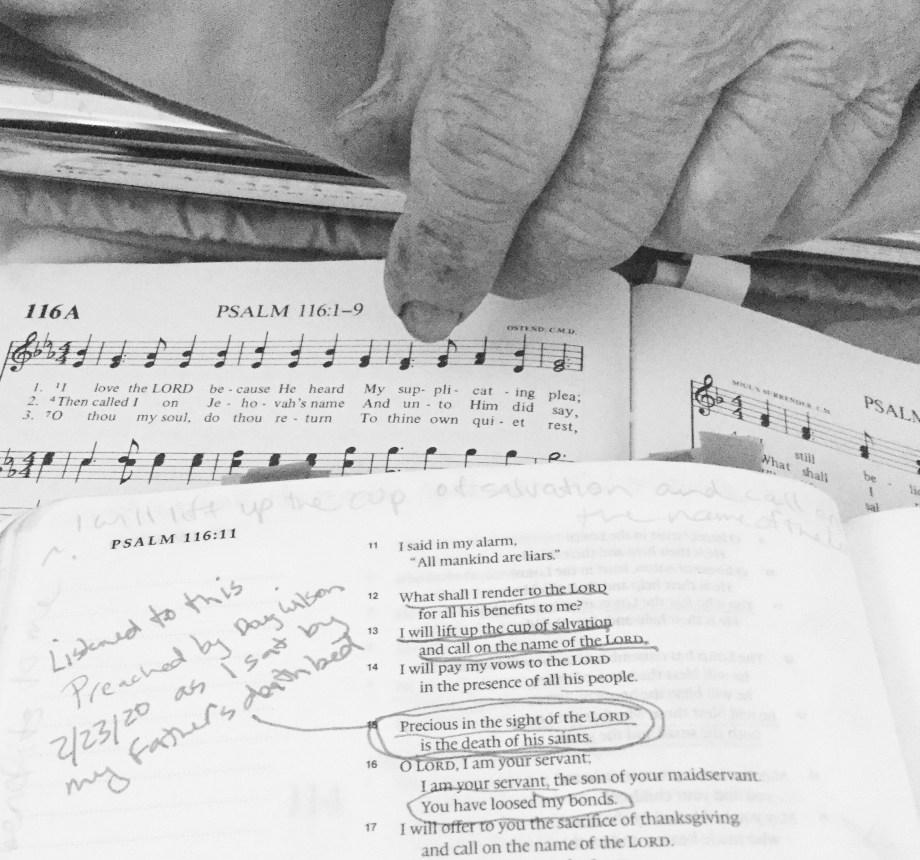 116A PSALM 116:1–9
OSTEND. C.M.D.
1. ¹I love the LORD be - cause He heard My sup- pli - cat - ing plea;
2. ⁴Then called I on Je - ho - vah's name And un - to Him did say,
3. ⁷O thou my soul, do thou re - turn To thine own qui - et rest,
PSALM
SOUL'S SURRENDER. C.M.
still
What shall be
I
sal
I will lift up the cup of salvation and call on
the name of the
PSALM 116:11
Listened to this
Preached by Doug Wilson
2/23/20 as I sat by
my Father's deathbed
11 I said in my alarm,
“All mankind are liars.”
12 What shall I render to the LORD
for all his benefits to me?
13 I will lift up the cup of salvation
and call on the name of the LORD,
14 I will pay my vows to the LORD
in the presence of all his people.
15 Precious in the sight of the LORD
is the death of his saints.
16 O LORD, I am your servant;
I am your servant, the son of your maidservant.
You have loosed my bonds.
17 I will offer to you the sacrifice of thanksgiving
and call on the name of the LORD.